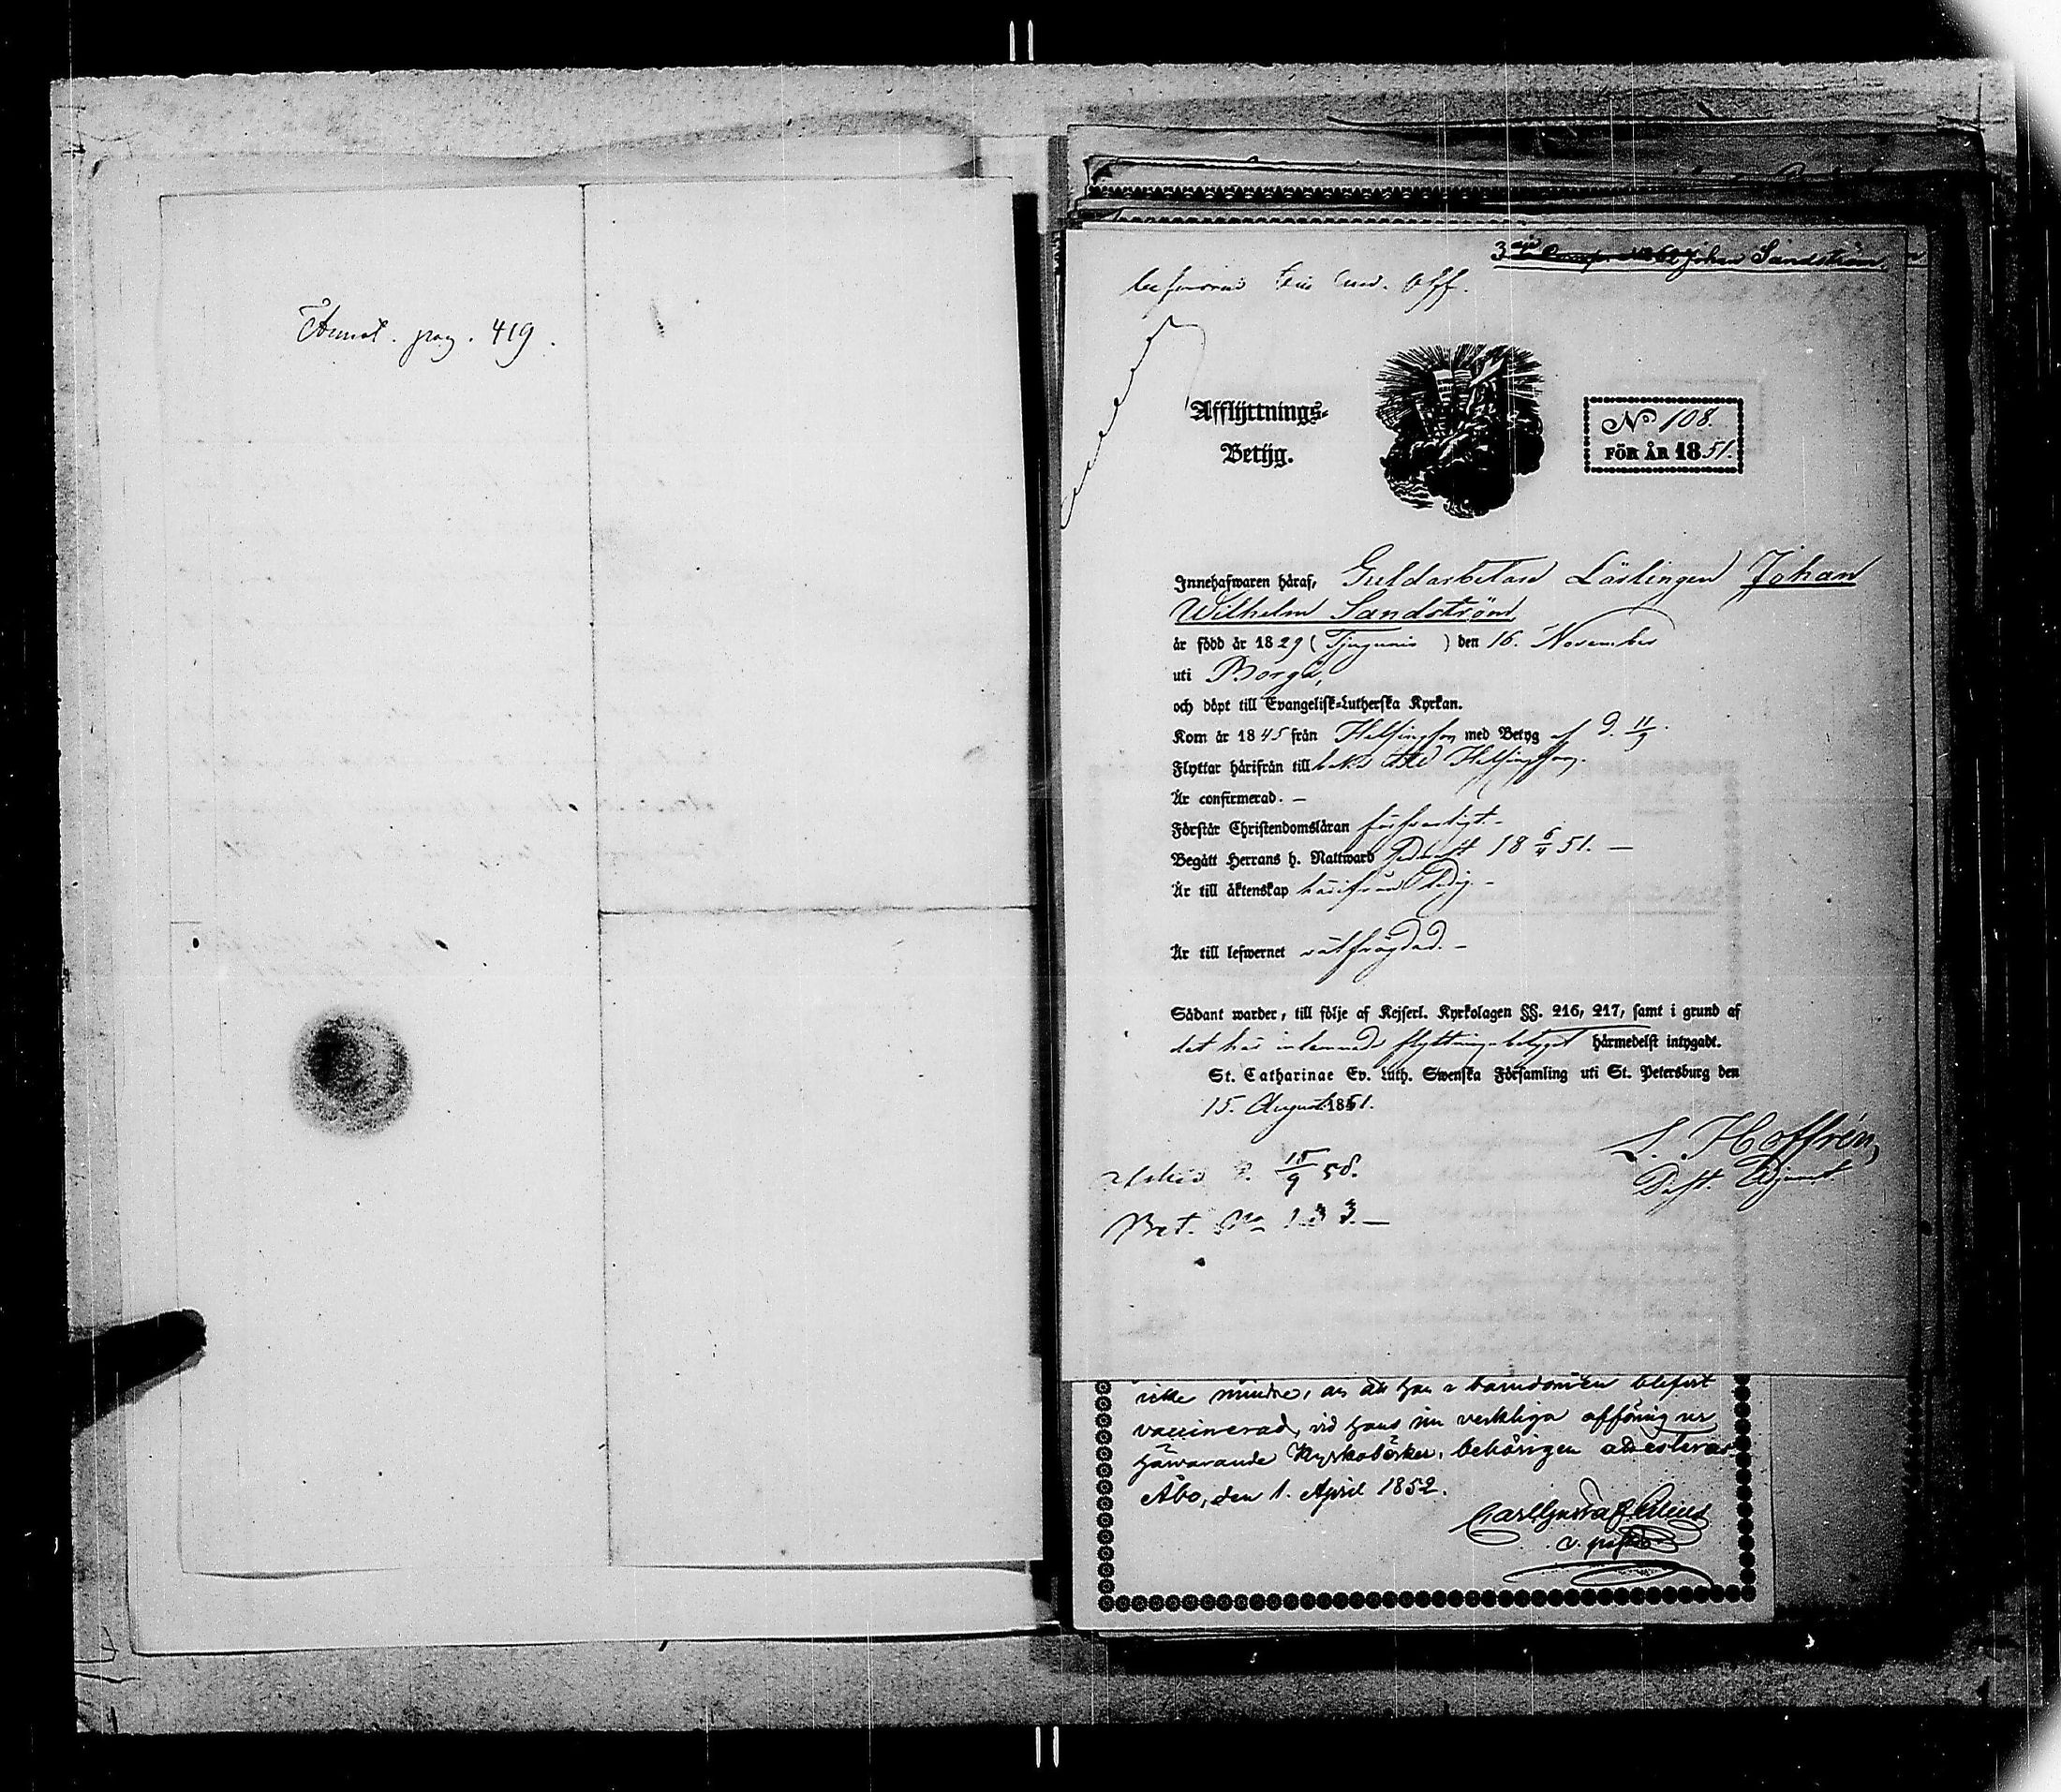 Annot. pag. 419.
3dje Comp. No 62 Johan Sandström.
Afflyttnings-
Betyg.
No 108.
FÖR ÅR 1851.
Innehafwaren häraf, Guldarbetare Lärlingen Johan
Wilhelm Sandström
är född år 1829 (Tjugunio) den 16. November
uti Borgå,
och döpt till Evangelisk-Lutherska Kyrkan.
Kom år 1845 från Helsingfors med Betyg af d. 11/9.
Flyttar härifrån tillbaka till Helsingfors.
Är confirmerad. —
Förstår Christendomsläran försvarligt. -
Begått Herrans h. Nattward sednast 18 6/4 51. —
Är till äktenskap härifrån ledig. -
Är till lefwernet välfrägdad. -
Sådant warder, till följe af Kejserl. Kyrkolagen §§. 216, 217, samt i grund af
det här inlemnade flyttningsbetyget härmedelst intygadt.
St. Catharinae Ev. Luth. Swenska Församling uti St. Petersburg den
15. August 1851.
L. Hoffrén,
Past. Adjunct.
d. 15/9 58.
Bet. No 133. —
icke mindre, än att han i barndomen blifvit
vaccinerad, vid hans nu verkliga afföring ur
härvarande Kyrkoböcker, behörigen attesteras
Åbo, den 1. April 1852.
Carl Gustaf
v. past